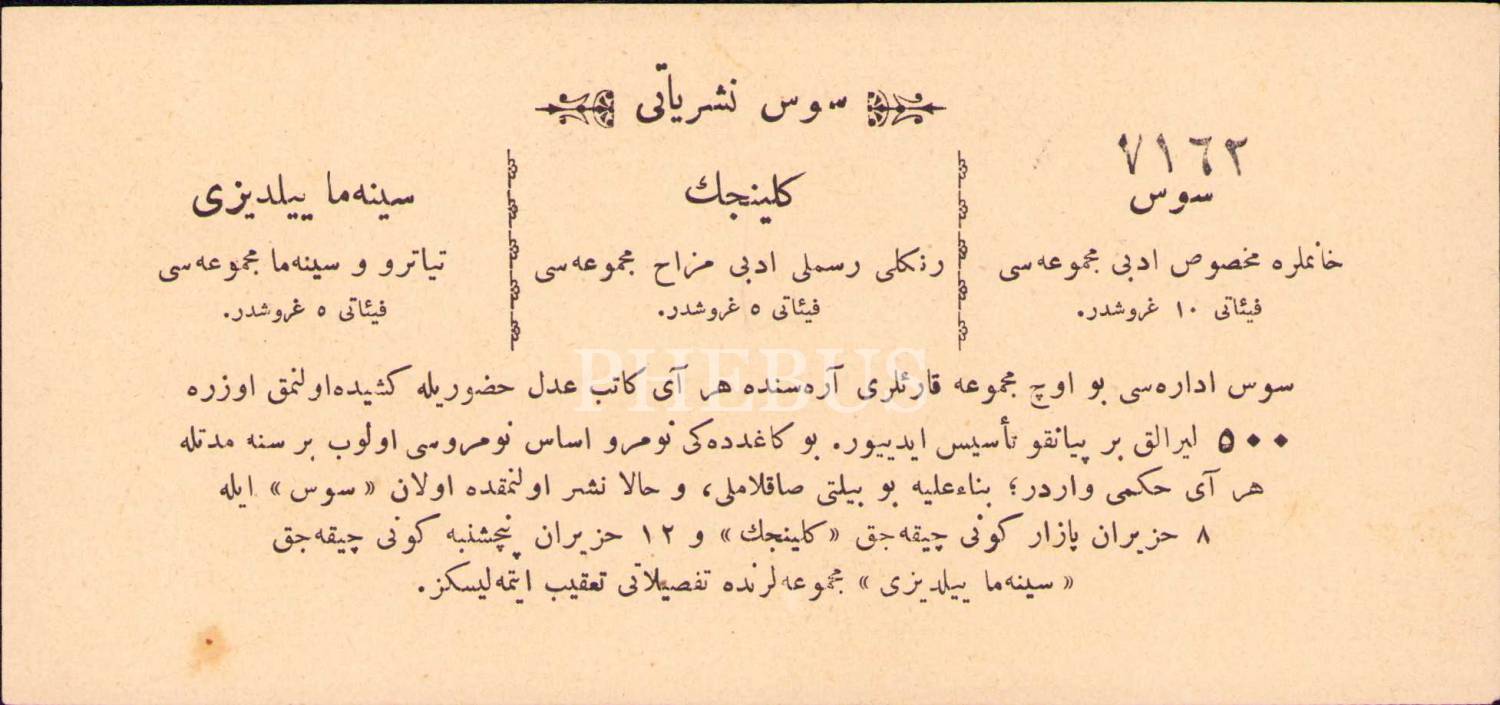 سوس نشریاتی
٧١٦٢
سوس
خانملره مخصوص ادبی مجموعه‌سی
فیئاتی ١٠ غروشدر.
كلینجك
رنكلی رسملی ادبی مزاح مجموعه‌سی
فیئاتی ٥ غروشدر.
سینه‌ما ییلدیزی
تیاترو و سینه‌ما مجموعه‌سی
فیئاتی ٥ غروشدر.
سوس اداره‌سی بو اوچ مجموعه قارئلری آره‌سنده هر آی كاتب عدل حضوریله كشیده‌اولنمق اوزره
٥٠٠ لیرالق بر پیانقو تأسیس ایدییور. بو كاغدده‌كی نومرو اساس نومروسی اولوب بر سنه مدتله
هر آی حكمی واردر؛ بناءعلیه بو بیلتی صاقلاملی، و حالا نشر اولنمقده اولان «سوس» ایله
٨ حزیران پازار كونی چیقه‌جق «كلینجك» و ١٢ حزیران پنچشنبه كونی چیقه‌جق
«سینه‌ما ییلدیزی» مجموعه‌لرنده تفصیلاتی تعقیب ایتمه‌لیسكز.
PHEBUS